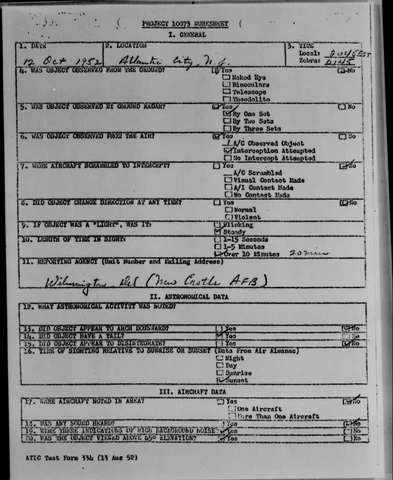 PROJECT 10073 WORKSHEET
I. GENERAL
1. DATE
12 Oct 1952
2. LOCATION
Atlantic City, N.J.
3. TIME
Local: 2045 EST
Zebra: 0145
4. WAS OBJECT OBSERVED FROM THE GROUND? Yes No
Naked Eye
Binoculars
Telescope
Theodolite
5. WAS OBJECT OBSERVED BY GROUND RADAR? Yes No
By One Set
By Two Sets
By Three Sets
6. WAS OBJECT OBSERVED FROM THE AIR? Yes No
A/C Observed Object
Interception Attempted
No Intercept Attempted
7. WERE AIRCRAFT SCRAMBLED TO INTERCEPT? Yes No
A/C Scrambled
Visual Contact Made
A/I Contact Made
No Contact Made
8. DID OBJECT CHANGE DIRECTION AT ANY TIME? Yes No
Normal
Violent
9. IF OBJECT WAS A "LIGHT", WAS IT: Blinking
Steady
10. LENGTH OF TIME IN SIGHT: 1-15 Seconds
1-5 Minutes
Over 10 Minutes 20 mins
11. REPORTING AGENCY (Unit Number and Mailing Address)
Wilmington, Del (New Castle AFB)
II. ASTRONOMICAL DATA
12. WHAT ASTRONOMICAL ACTIVITY WAS NOTED?
13. DID OBJECT APPEAR TO ARCH DOWNWARD? Yes No
14. DID OBJECT HAVE A TAIL? Yes No
15. DID OBJECT APPEAR TO DISINTEGRATE? Yes No
16. TIME OF SIGHTING RELATIVE TO SUNRISE OR SUNSET (Data From Air Almanac)
Night
Day
Sunrise
Sunset
III. AIRCRAFT DATA
17. WERE AIRCRAFT NOTED IN AREA? Yes No
One Aircraft
More Than One Aircraft
18. WAS ANY SOUND HEARD? Yes No
19. WERE THERE INDICATIONS OF HIGH BACKGROUND NOISE? Yes No
20. WAS THE OBJECT VIEWED ABOVE 45° ELEVATION? Yes No
ATIC Test Form 334 (13 Aug 52)